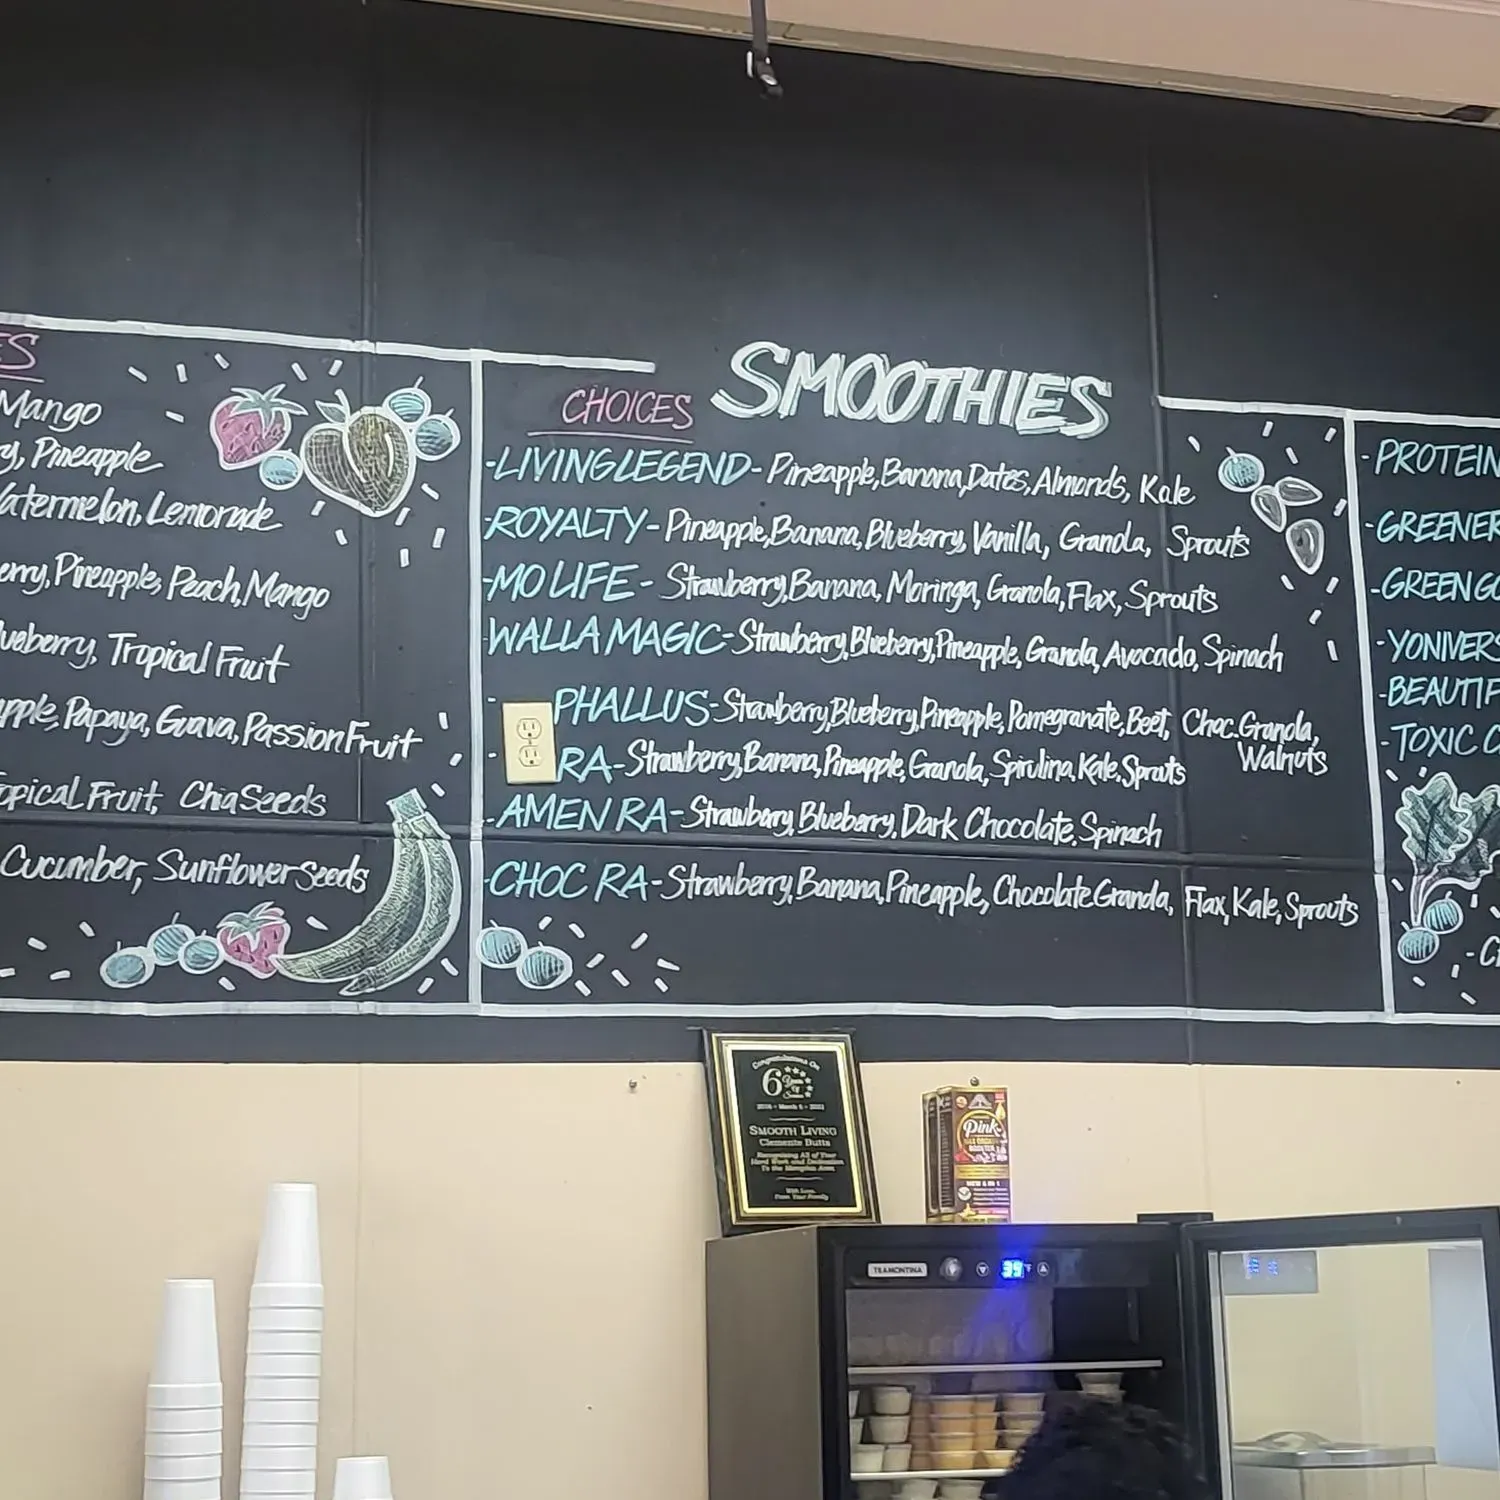 ES
Mango
Pineapple
Watermelon, Lemonade
Pineapple, Peach, Mango
Tropical Fruit
Papaya, Guava, Passion Fruit
Tropical Fruit, Chia Seeds
Cucumber, Sunflower Seeds
SMOOTHIES
CHOICES
-LIVING LEGEND- Pineapple, Banana, Dates, Almonds, Kale
-ROYALTY- Pineapple, Banana, Blueberry, Vanilla, Granola, Sprouts
-MO LIFE- Strawberry, Banana, Moringa, Granola, Flax, Sprouts
-WALLA MAGIC- Strawberry, Blueberry, Pineapple, Granola, Avocado, Spinach
- PHALLUS- Strawberry, Blueberry, Pineapple, Pomegranate, Beet, Choc. Granola,
Walnuts
- RA- Strawberry, Banana, Pineapple, Granola, Spirulina, Kale, Sprouts
-AMEN RA- Strawberry, Blueberry, Dark Chocolate, Spinach
-CHOC RA- Strawberry, Banana, Pineapple, Chocolate Granola, Flax, Kale, Sprouts
-PROTEIN
-GREENER
-GREEN GO
-YONIVERS
-BEAUTIF
-TOXIC C
Congratulations On
6 Years
Of
SMOOTH LIVING
Clemente Butts
Recognizing All of Your
Hard Work and Dedication
To the Memphis Area
With Love,
From Your Family
Pink
TRAMONTINA
39°F